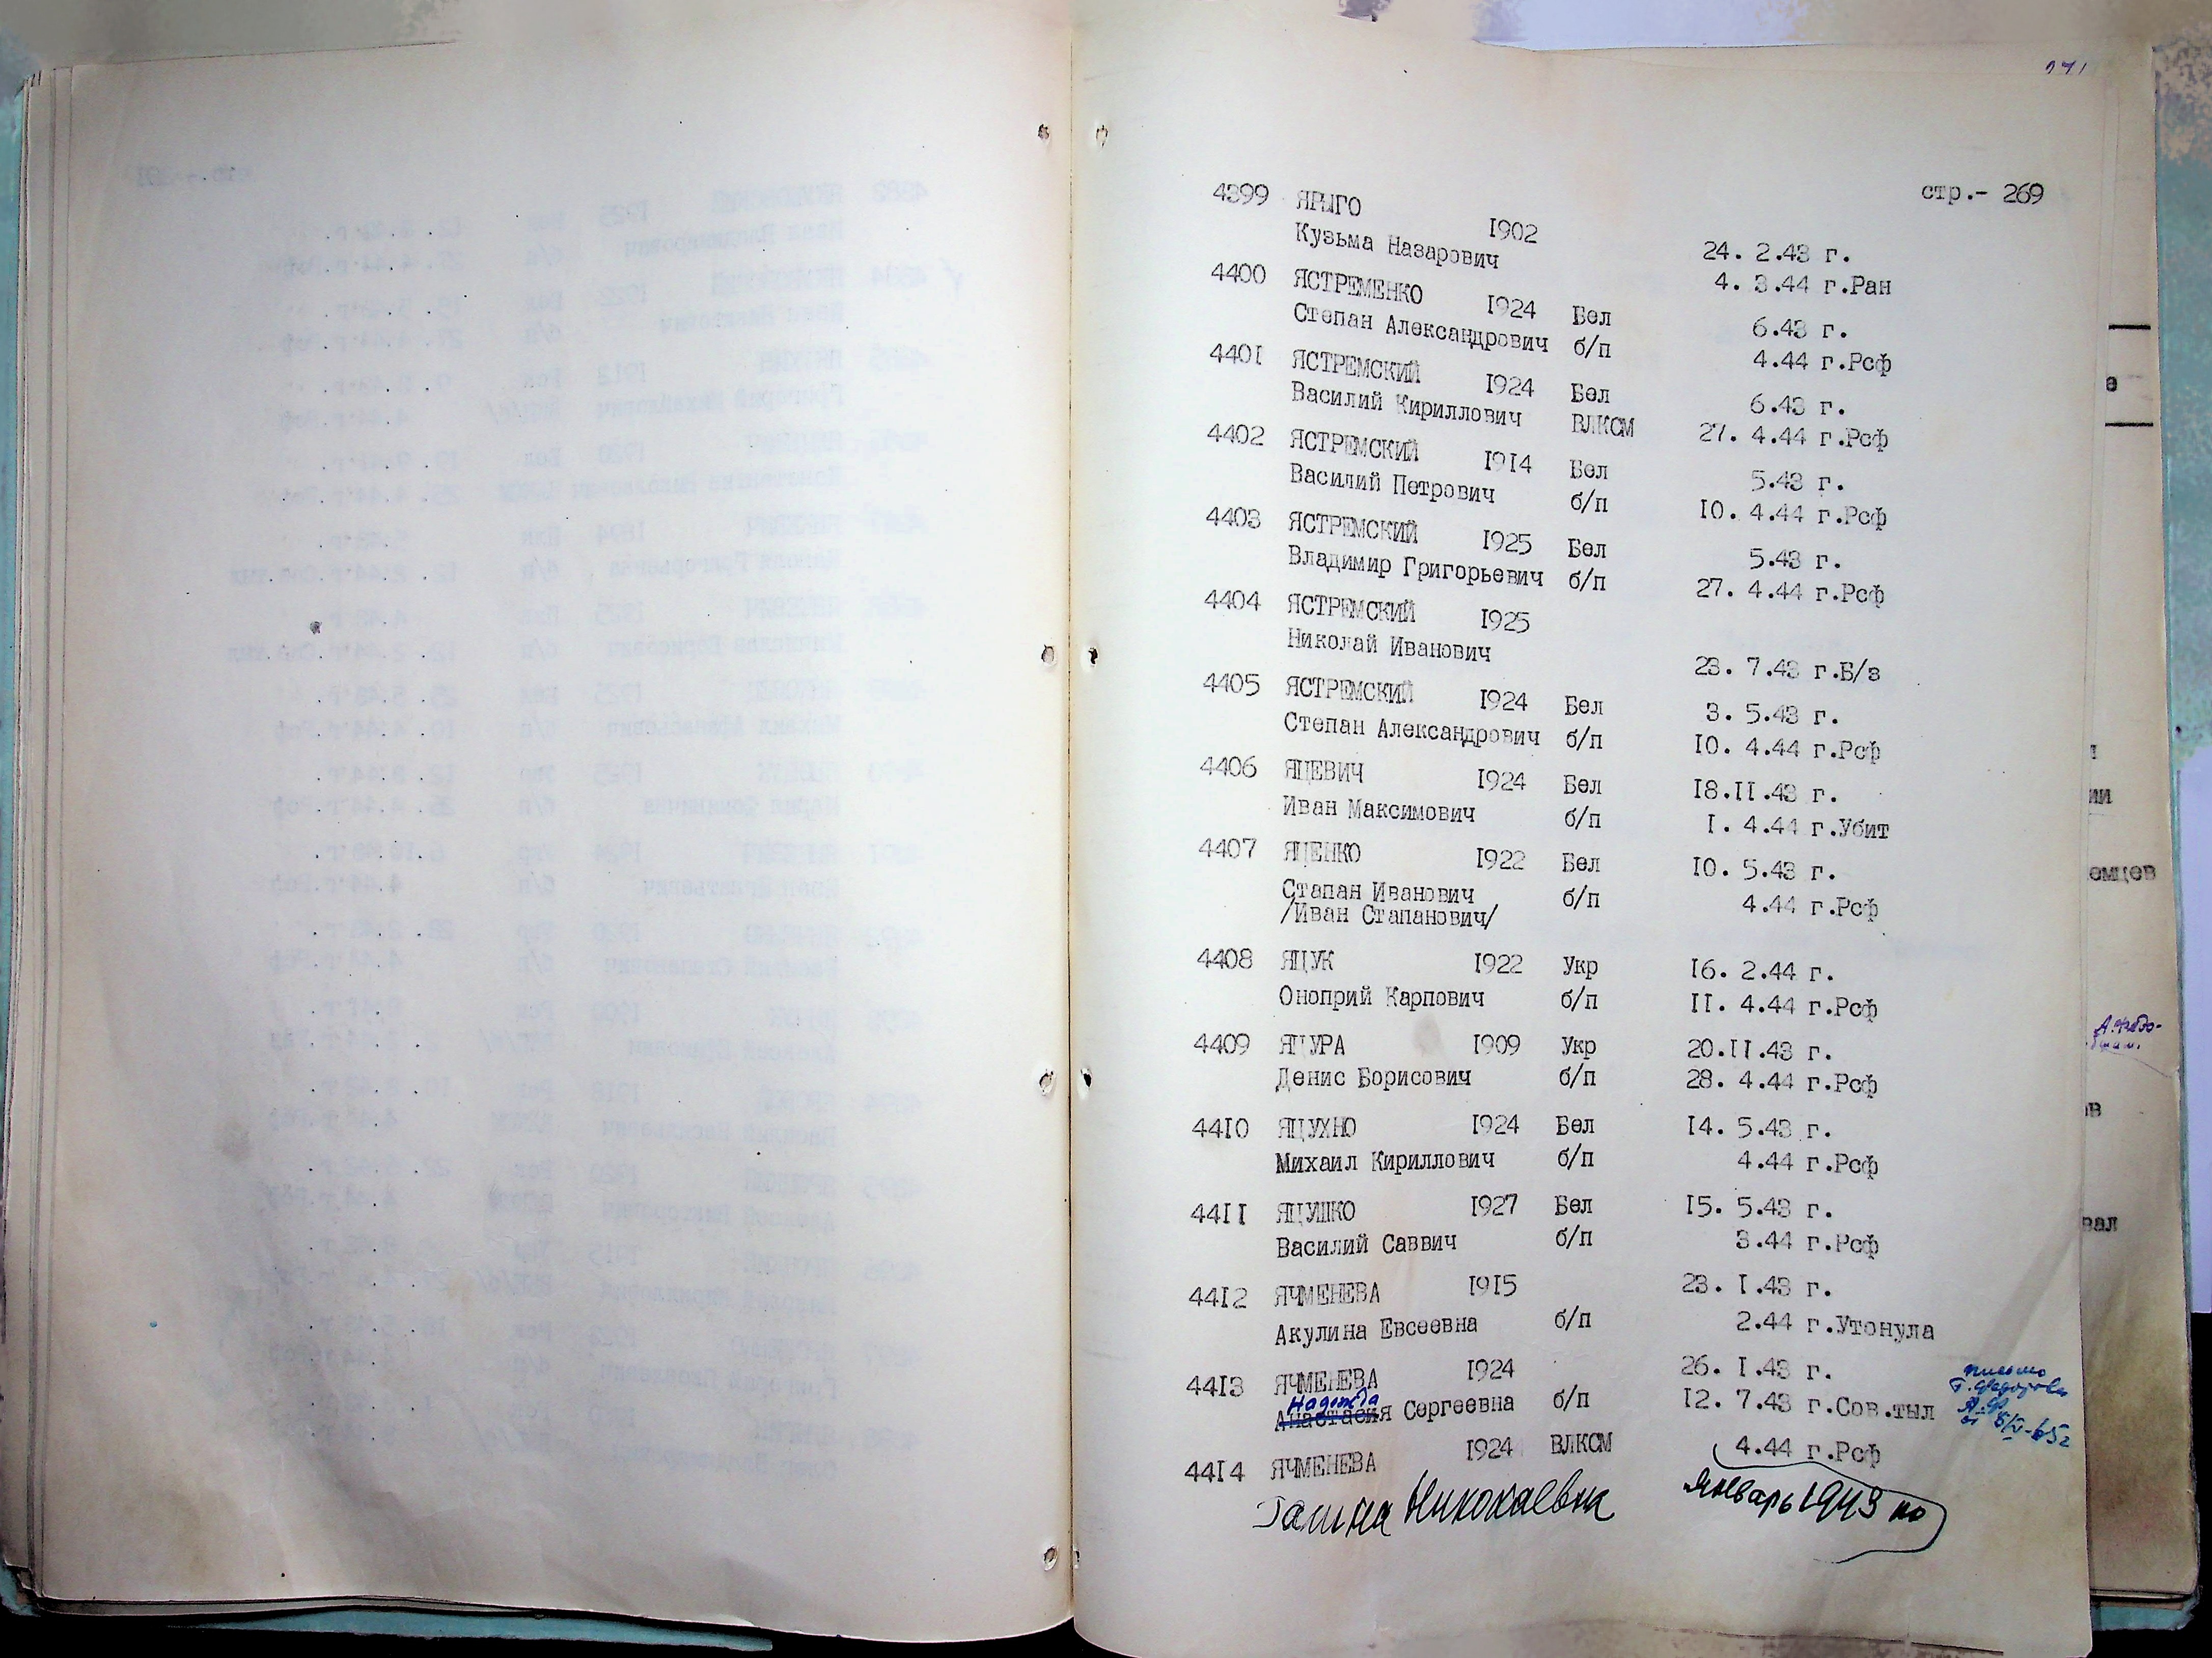 стр.- 269
4399 ЯРЫГО 1902 24. 2.43 г.
Кузьма Назарович 4. 3.44 г.Ран
4400 ЯСТРЕМЕНКО 1924 Бел 6.43 г.
Степан Александрович б/п 4.44 г.Рсф
4401 ЯСТРЕМСКИЙ 1924 Бел 6.43 г.
Василий Кириллович ВЛКСМ 27. 4.44 г.Рсф
4402 ЯСТРЕМСКИЙ 1914 Бел 5.43 г.
Василий Петрович б/п 10. 4.44 г.Рсф
4403 ЯСТРЕМСКИЙ 1925 Бел 5.43 г.
Владимир Григорьевич б/п 27. 4.44 г.Рсф
4404 ЯСТРЕМСКИЙ 1925
Николай Иванович 23. 7.43 г.Б/з
4405 ЯСТРЕМСКИЙ 1924 Бел 3. 5.43 г.
Степан Александрович б/п 10. 4.44 г.Рсф
4406 ЯЦЕВИЧ 1924 Бел 18.11.43 г.
Иван Максимович б/п 1. 4.44 г.Убит
4407 ЯЦЕНКО 1922 Бел 10. 5.43 г.
Стапан Иванович б/п 4.44 г.Рсф
/Иван Стапанович/
4408 ЯЦУК 1922 Укр 16. 2.44 г.
Оноприй Карпович б/п 11. 4.44 г.Рсф
4409 ЯЦУРА 1909 Укр 20.11.43 г.
Денис Борисович б/п 28. 4.44 г.Рсф
4410 ЯЦУХНО 1924 Бел 14. 5.43 г.
Михаил Кириллович б/п 4.44 г.Рсф
4411 ЯЦУШКО 1927 Бел 15. 5.43 г.
Василий Саввич б/п 3.44 г.Рсф
4412 ЯЧМЕНЕВА 1915 23. 1.43 г.
Акулина Евсеевна б/п 2.44 г.Утонула
4413 ЯЧМЕНЕВА 1924 26. 1.43 г. письмо
Надежда
Анастасия Сергеевна б/п 12. 7.43 г.Сов.тыл
4414 ЯЧМЕНЕВА 1924 ВЛКСМ 4.44 г.Рсф
Галина Николаевна январь 1943 по